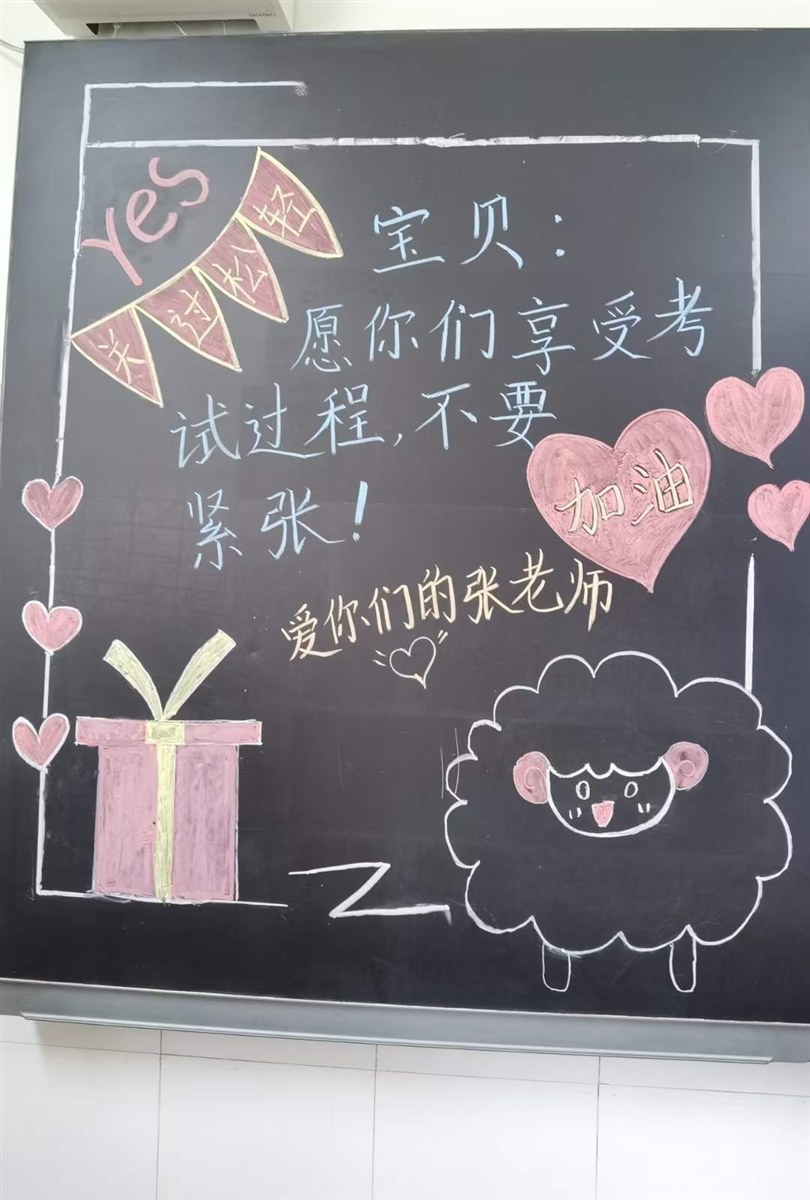 yes
关过松轻
宝贝：
愿你们享受考
试过程,不要
紧张！
加油
爱你们的张老师